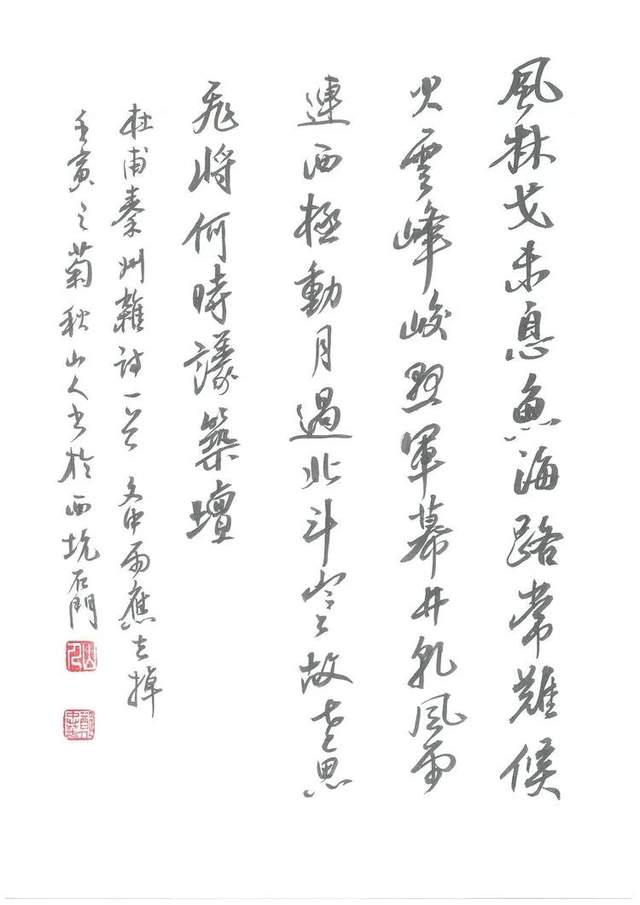 風林戈未息魚海路常難候
火雲峰峻懸軍幕井乾風雨
連西極動月過北斗寒故老思
飛將何時議築壇
杜甫秦州雜詩一首 文中雨應去掉
壬寅之菊秋山人書於西坑石門
山人